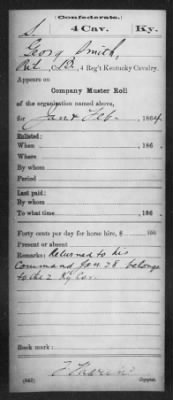 (Confederate.)
S. 4 Cav. Ky.
Georg Smith,
Pvt, Co. B, 4 Reg't Kentucky Cavalry.
Appears on
Company Muster Roll
of the organization named above,
for Jan & Feb, 1864.
Enlisted:
When , 186 .
Where
By whom
Period
Last paid:
By whom
To what time , 186 .
Forty cents per day for horse hire, $ 100
Present or absent
Remarks: Returned to his
Command Jan. 28 belongs
to the 2 Ky Cav.
Book mark:
(642) Copyist.